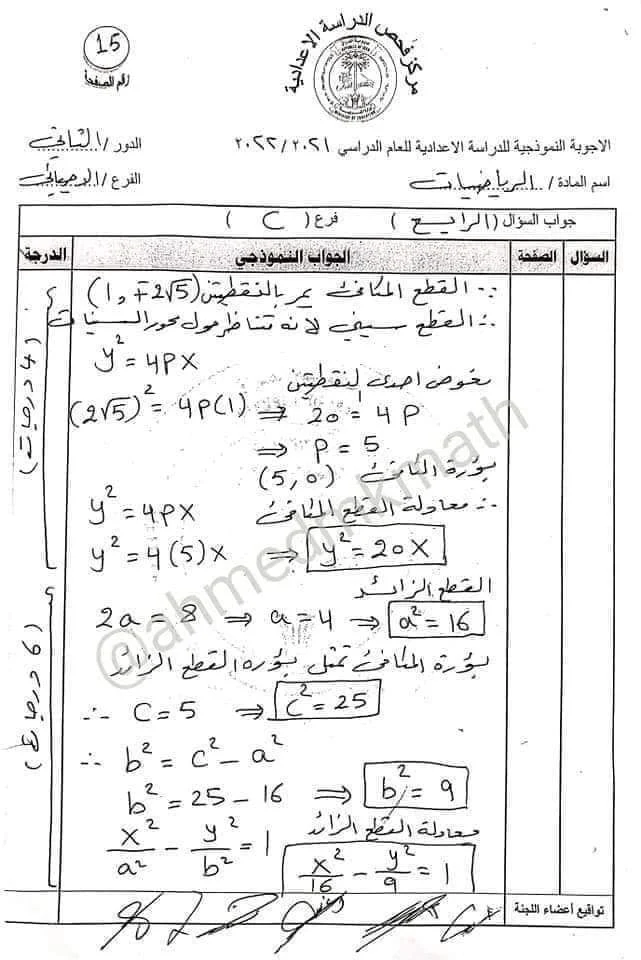 15
رقم الصفحة
مركز فحص الدراسة الاعدادية
الاجوبة النموذجية للدراسة الاعدادية للعام الدراسي ٢٠٢١ / ٢٠٢٢
الدور / الثاني
اسم المادة / الرياضيات
الفرع / الاحيائي
جواب السؤال (الرابع) فرع (C)
السؤال الصفحة الجواب النموذجي الدرجة
∵ القطع المكافئ يمر بالنقطتين (1, ∓2√5)
∴ القطع سيني لانه متناظر حول محور السينات
y² = 4px
نعوض احدى لنقطتين
(2√5)² = 4p(1) ⇒ 20 = 4p
⇒ p = 5
بؤرة المكافئ (5,0)
∴ معادلة القطع المكافئ y² = 4px
y² = 4(5)x ⇒ y² = 20x
(4 درجات)
القطع الزائد
2a = 8 ⇒ a = 4 ⇒ a² = 16
بؤرة المكافئ تمثل بؤرة القطع الزائد
∴ c = 5 ⇒ c² = 25
∴ b² = c² - a²
b² = 25 - 16 ⇒ b² = 9
معادلة القطع الزائد
x²/a² - y²/b² = 1
x²/16 - y²/9 = 1
(6 درجات)
تواقيع أعضاء اللجنة
@ahmedmkmath